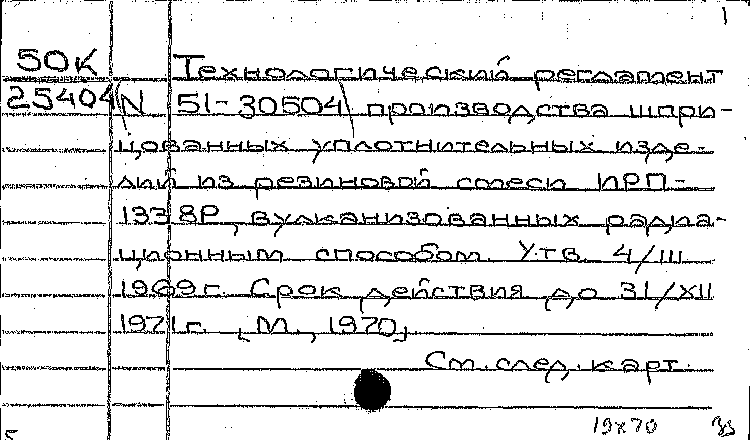 1
50К Технологический регламент
25404 (N 51-30504) производства шпри-
цованных уплотнительных изде-
лий из резиновой смеси ИРП-
1338Р, вулканизованных радиа-
ционным способом. Утв. 4/III
1969г. Срок действия до 31/XII
1971г. [М., 1970]
См. след. карт.
19х70